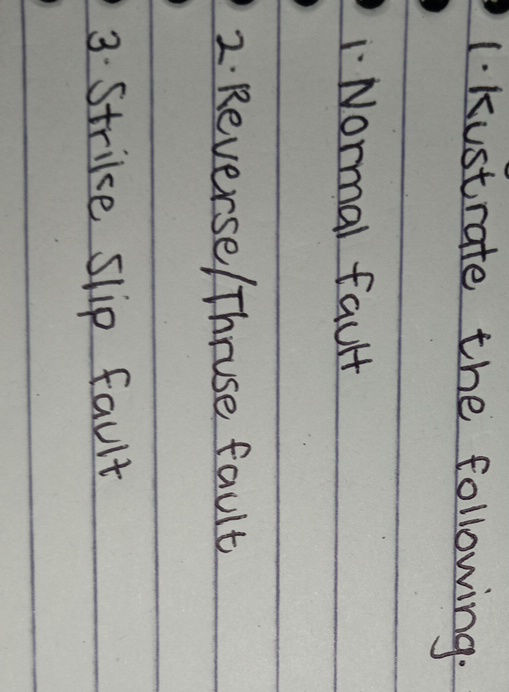 1. Kustrate the following.
1. Normal fault
2. Reverse/Thruse fault
3. Strike Slip fault